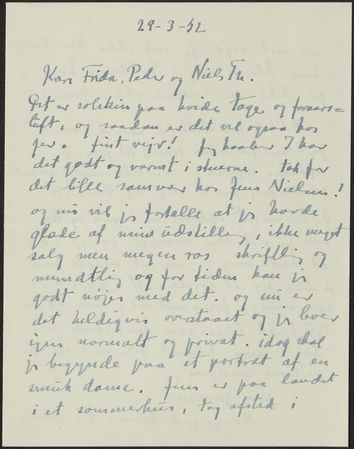 29-3-52
Kære Frida, Peder og Niels Th.
Det er solskin paa hvide tage og foraars=
luft, og saadan er det vel ogsaa hos
jer. fint vejr! Jeg haaber I har
det godt og varmt i stuerne. tak for
det lille samvær hos Jens Nielsen!
og nu vil jeg fortælle at jeg havde
glæde af min udstilling, ikke noget
salg men megen ros skriftlig og
mundtlig og for tiden kan jeg
godt nøjes med det. og nu er
det heldigvis overstaaet og jeg lever
igen normalt og privat. idag skal
jeg begynde paa et portræt af en
smuk dame. Jens er paa landet
i et sommerhus, tog afsted i